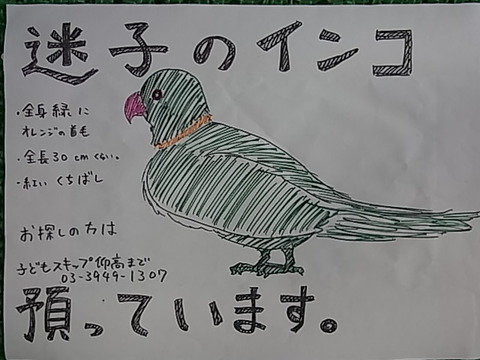 迷子のインコ
・全身緑に
オレンジの首毛
・全長30cmくらい。
・紅いくちばし
お探しの方は
子どもスキップ仰高まで
03-3949-1307
預っています。